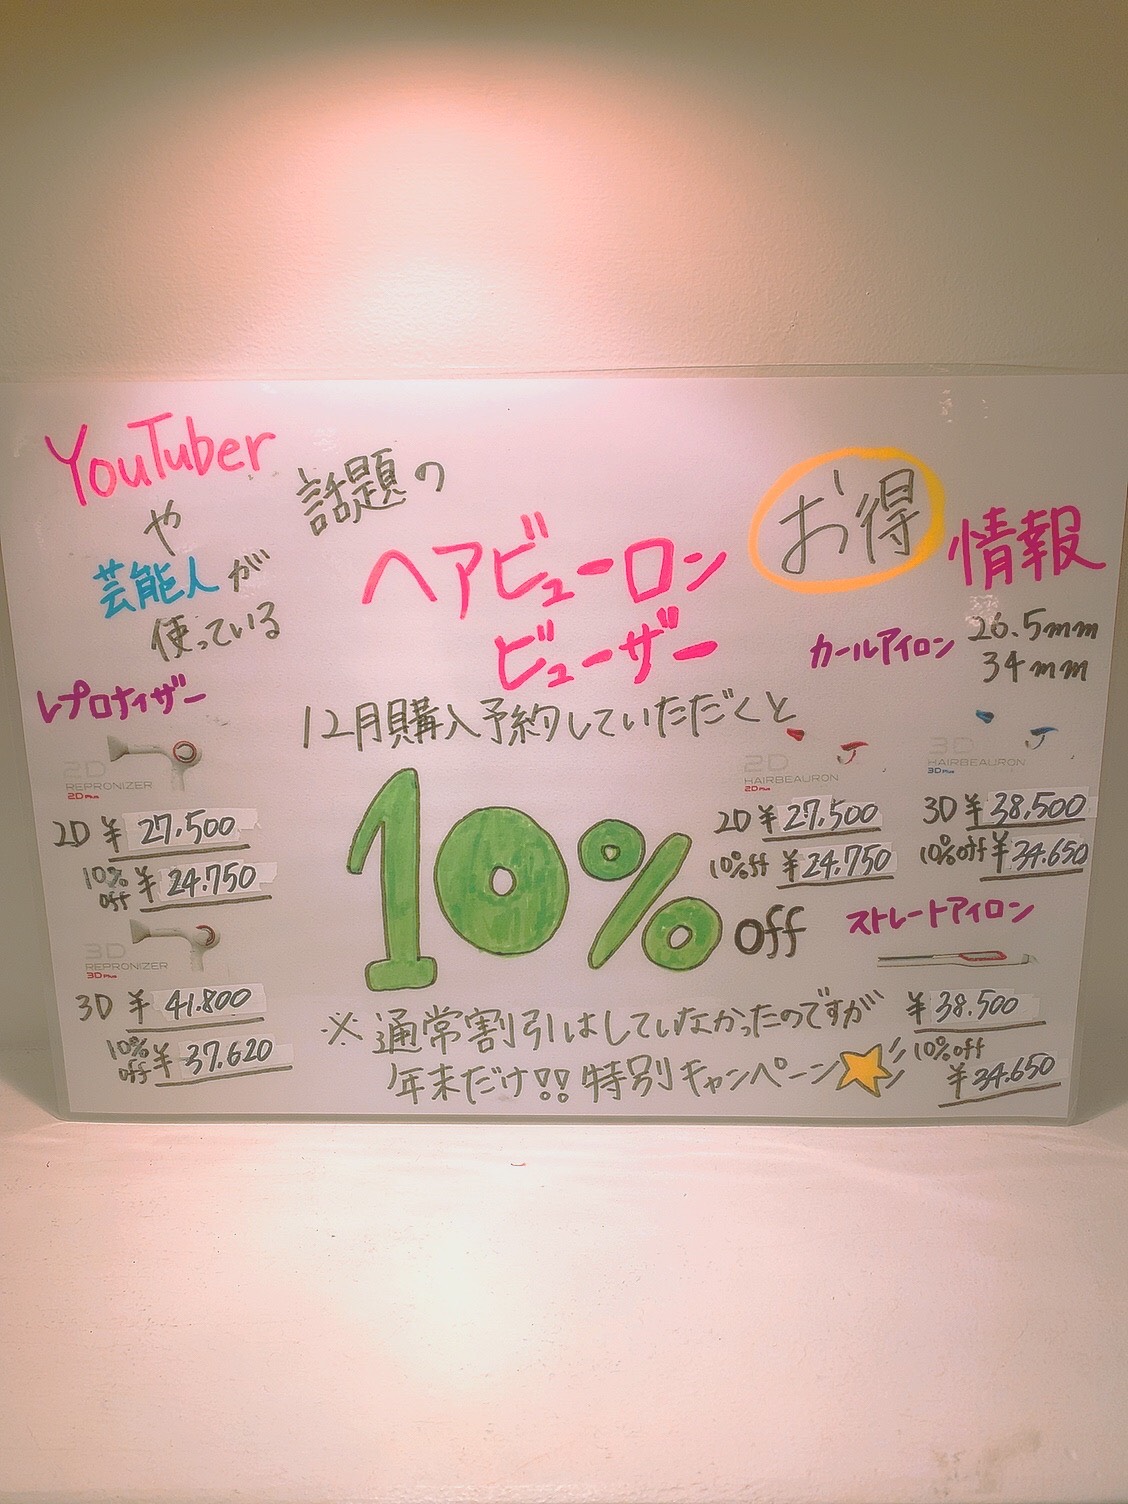 YouTuber
や
芸能人が
使っている
話題の
ヘアビューロン
ビューザー
お得
情報
12月購入予約していただくと
10%off
※通常割引はしていなかったのですが
年末だけ!!特別キャンペーン
レプロナイザー
2D
REPRONIZER
2D Plus
2D ¥27,500
10%off ¥24.750
3D
REPRONIZER
3D Plus
3D ¥41.800
10%off ¥37,620
カールアイロン 26.5mm
34mm
2D
HAIRBEAURON
2D Plus
2D ¥27,500
10%off ¥24.750
3D
HAIRBEAURON
3D Plus
3D ¥38,500
10%off ¥34.650
ストレートアイロン
¥38.500
10%off
¥34.650